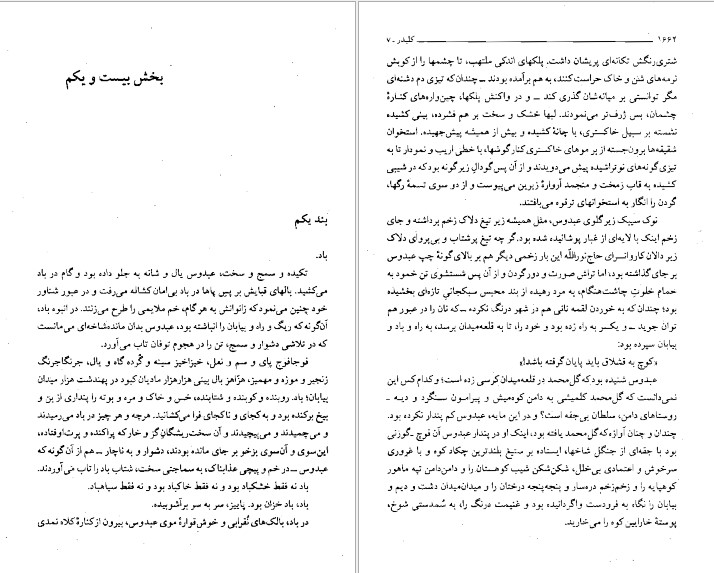 ۱۶۶۲ کلیدر ـ ۷
شتری‌رنگش تکانه‌ای پریشان داشت. پلکهای اندکی ملتهب، تا چشمها را از کوبش
نرمه‌های شن و خاک حراست کنند، به هم برآمده بودند ــ چندان که تیزی دم دشنه‌ای
مگر توانستی بر میانه‌شان گذری کند ــ و در واکنش پلکها، چین‌واره‌های کنارهٔ
چشمان، بس ژرف‌تر می‌نمودند. لبها خشک و سخت بر هم فشرده، بینی کشیده
نشسته بر سبیل خاکستری، با چانهٔ کشیده و بیش از همیشه پیش‌جهیده. استخوان
شقیقه‌ها برون‌جسته از بر موهای خاکستری کنار گوشها، با خطی اریب و نمودار تا به
تیزی گونه‌های نوتراشیده پیش می‌دویدند و از آن پس گودال زیر گونه بود که در شیبی
کشیده به قاب زمخت و منجمد آروارهٔ زیرین می‌پیوست و از دو سوی تسمهٔ رگها،
گردن را انگار به استخوانهای ترقوه می‌بافتند.
نوک سیبک زیر گلوی عبدوس، مثل همیشه زیر تیغ دلاک زخم برداشته و جای
زخم اینک با لایه‌ای از غبار پوشانیده شده بود. گر چه تیغ پرشتاب و بی‌پروای دلاک
زیر دالان کاروانسرای حاج‌نورالله این بار زخمی دیگر هم بر بالای گونهٔ چپ عبدوس
بر جای گذاشته بود، اما تراش صورت و دور گردن و از آن پس شستشوی تن خمود به
حمام خلوت چاشت‌هنگام، به مرد رهیده از بند محبس سبکجانی تازه‌ای بخشیده
بود؛ چندان که به خوردن لقمه نانی هم در شهر درنگ نکرده ــ که نان را در عبور هم
توان جوید ــ و یکسر به راه زده بود و خود را، تا به قلعه‌میدان برسد، به راه و باد و
بیابان سپرده بود:
«کوچ به قشلاق باید پایان گرفته باشد!»
عبدوس شنیده بود که گل‌محمد در قلعه‌میدان کرسی زده است؛ و کدام کس این
نمی‌دانست که گل‌محمد کلمیشی به دامن کوه‌میش و پیرامون سنگرد و دیه ــ
روستاهای دامن، سلطان بی‌جقه است؟ و در این مایه، عبدوس کم پندار نکرده بود.
چندان و چنان آوازه‌که گل‌محمد یافته بود، اینک او در پندار عبدوس آن قوچ ـ گوزنی
بود با جقه‌ای از جنگل شاخها، ایستاده بر ستیغ بلندترین چکاد کوه و با غروری
سرخوش و اعتمادی بی‌خلل، شکن‌شکن شیب کوهستان را و دامن‌دامن تپه ماهور
کوهپایه را و زخم‌زخم دره‌سار و پنجه‌پنجه درختان را و میدان‌میدان دشت و دیم و
بیابان را نگاه به فرودست واگردانیده بود و غنیمت درنگ را، به سُمدستی شوخ،
پوستهٔ خارایین کوه را می‌خارید.
بخش بیست و یکم
بند یکم
باد.
تکیده و سمج و سخت، عبدوس یال و شانه به جلو داده بود و گام در باد
می‌کشید. بالهای قبایش بر پس پاها در باد بی‌امان کشانه می‌رفت و در عبور شناور
خود چنین می‌نمود که زانوانش به هر گام، خم ملایمی را طرح می‌زنند. در انبوه باد،
آن‌گونه که ریگ و راه و بیابان را انباشته بود، عبدوس بدان مانده‌شاخه‌ای می‌مانست
که در تلاشی دشوار و سمج، تن را در هجوم توفان تاب می‌آورد.
فوجافوج پای و سم و نعل، خیزاخیز سینه و گُرده گاه و یال، جرنگاجرنگ
زنجیر و موزه و مهمیز، هزاهز بال بینی هزارهزار مادیان کبود در پهندشت هزار میدان
بیابان؛ باد. روبنده و کوبنده و شتابنده، خس و خاک و مره و بوته را پنداری از بن و
بیخ برکنده بود و به کجای و ناکجای فرا می‌کشانید. هرچه و هر چیز در باد می‌رمیدند
و می‌چمیدند و می‌پیچیدند و آن سخت‌ریشگانِ گز و خار که پراکنده و پرت‌اوفتاده،
این‌سوی و آن‌سوی بر خو بر جای مانده بودند، دشوار و به ناچار ــ هم از آن گونه که
عبدوس ــ در خم و پیچی عذابناک، به سماجتی سخت، شتاب باد را تاب می‌آوردند.
باد نه فقط خشکباد بود و نه فقط خاکباد بود و نه فقط سیاهباد.
باد، باد خزان بود. پاییز، سر به سر برآشوبیده.
در باد، بالک‌های نُقرابی و خوش‌قوارهٔ موی عبدوس، بیرون از کنارهٔ کلاه نمدی